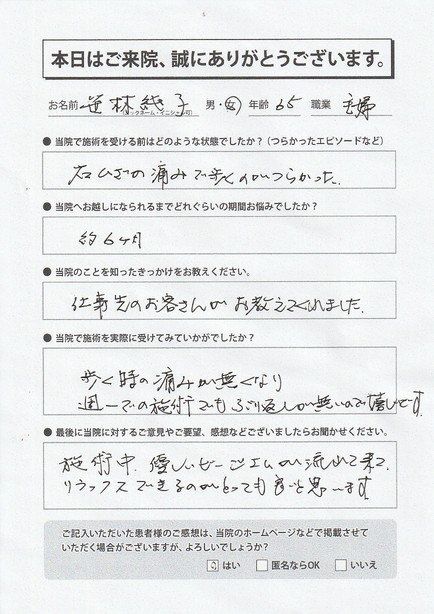 本日はご来院、誠にありがとうございます。
お名前 笹林 子 男・女 年齢 65 職業 主婦
(ニックネーム・イニシャル可)
● 当院で施術を受ける前はどのような状態でしたか？（つらかったエピソードなど）
右ひざの痛みで歩くのがつらかった。
● 当院へお越しになられるまでどれぐらいの期間お悩みでしたか？
約6ヶ月
● 当院のことを知ったきっかけをお教えください。
仕事先のお客さんがお教えてくれました。
● 当院で施術を実際に受けてみていかがでしたか？
歩く時の痛みが無くなり
週一での施術でもぶり返しが無いので嬉しいです。
● 最後に当院に対するご意見やご要望、感想などございましたらお聞かせください。
施術中、優しいビージエムが流れて来て、
リラックスできるのがとても良いと思います。
ご記入いただいた患者様のご感想は、当院のホームページなどで掲載させて
いただく場合がございますが、よろしいでしょうか？
はい 匿名ならOK いいえ